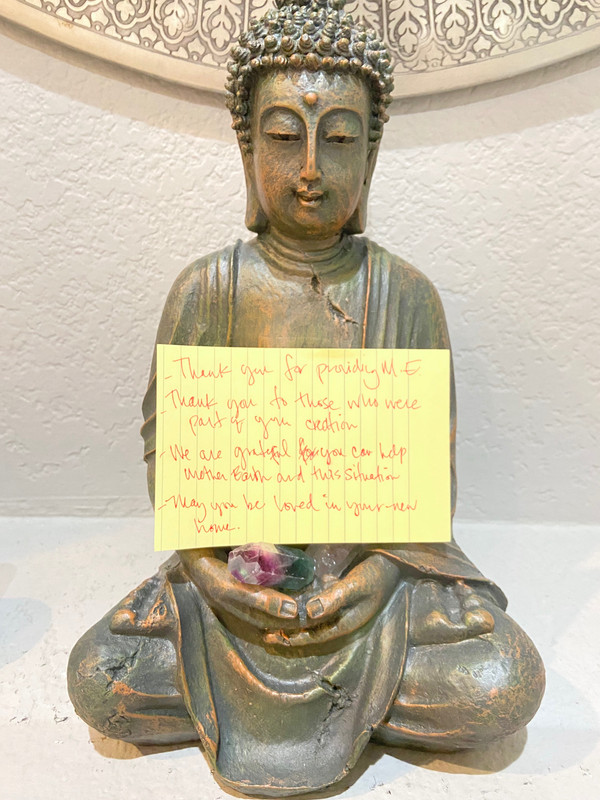 - Thank you for providing M.E.
- Thank you to those who were
part of your creation
- We are grateful for you can help
Mother Earth and this situation
- May you be loved in your new
home.